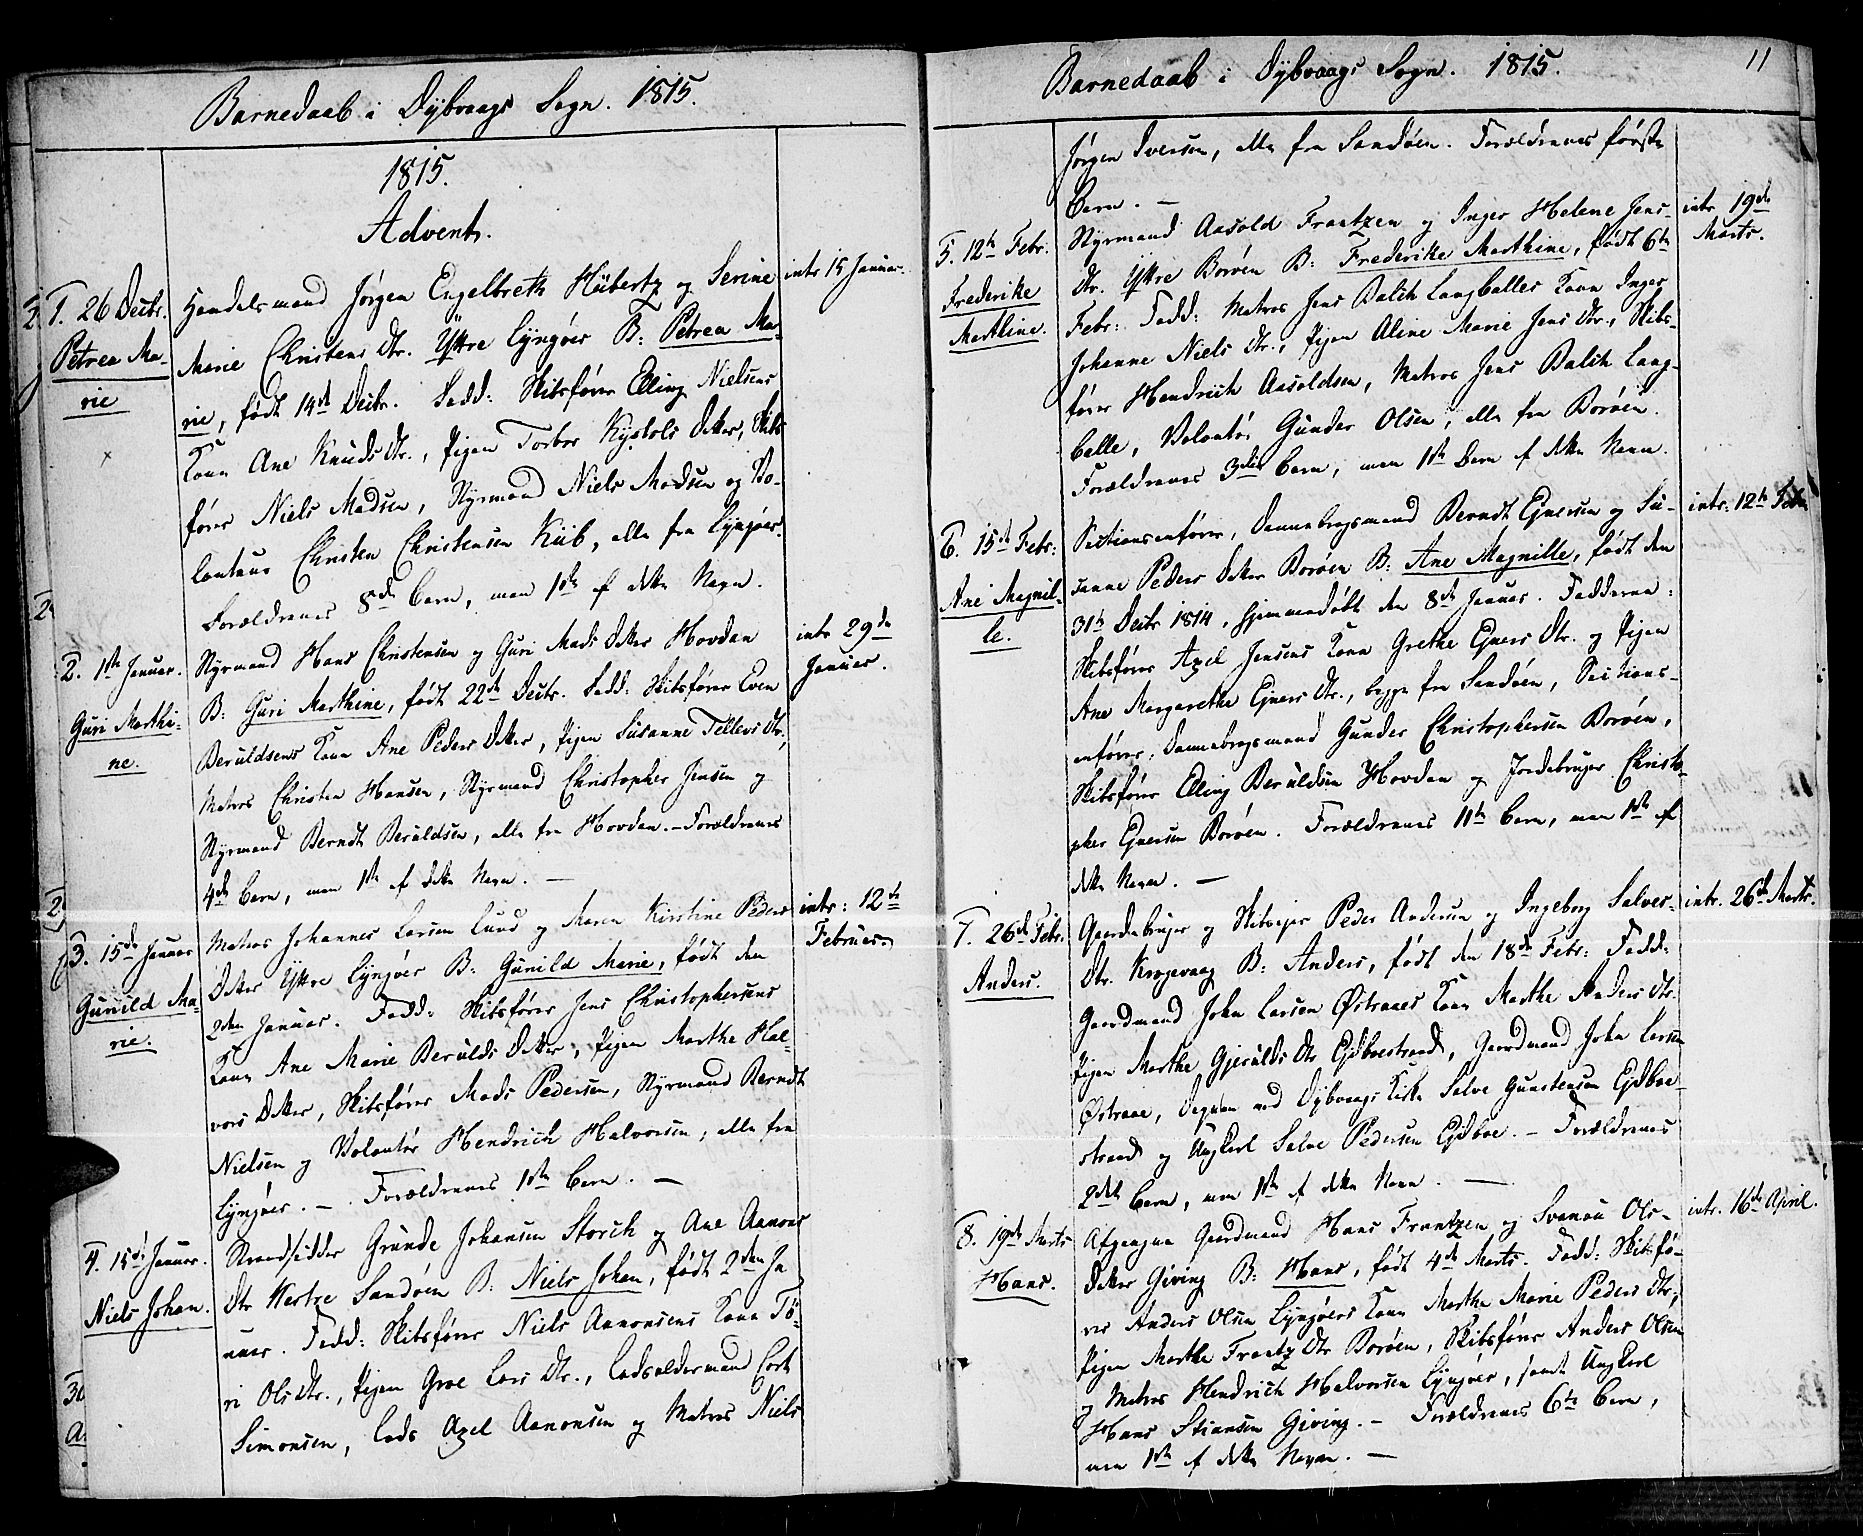 Barnedaab i Dybvaags Sogn. 1815.
1815.
Advent.
1. 26 Decbr.
Petrea Ma-
rie
Handelsmand Jørgen Engelbreth Hübertz og Serine
Marie Christens Dtr. Yttre Lyngøer B: Petrea Ma-
rie, født 14de Decbr. Fadd: Skibsfører Elling Nielsens
Kone Ane Knuds Dtr., Pigen Torbor Dotter, Skibs
fører Niels Madsen, Styrmand Niels Madsen og Vo-
lonteur Christen Christensen Kiib, alle fra Lyngøer.
Forældrenes 8de Barn, men 1ste af dette Navn.
intr 15 Januar.
2. 1ste Januar.
Guri Marthi-
ne.
Styrmand Hans Christensen og Guri Mads Dotter Hovdan
B: Guri Marthine, født 22de Decbr. Fadd: Skibsfører Even
Beruldsens Kone Ane Peders Dotter, Pigen Susanne Tellevs Dtr,
Matros Christen Hansen, Styrmand Christopher Jensen og
Styrmand Berndt Beruldsen, alle fra Hovdan. - Forældrenes
4de Barn, men 1ste af dette Navn. -
intr 29de
Januar.
3. 15de Januar
Gunild Ma-
rie.
Matros Johannes Larsen Lund og Maren Kirstine Peders
Dotter Yttre Lyngøer B: Gunild Marie, født den
2den Januar. Fadd: Skibsfører Jens Christophersens
Kone Ane Marie Berulds Dotter, Pigen Marthe Hal-
vors Dotter, Skibsfører Mads Pedersen, Styrmand Berndt
Nielsen og Volontør Hendrich Halvorsen, alle fra
Lyngøer. - Forældrenes 1ste Barn. -
intr: 12te
Februar
4. 15de Januar.
Niels Johan.
Strandsidder Grunde Johansen Storch og Ane Aanons
Dtr Sandøen B: Niels Johan, født 2den Ja
nuar. Fadd: Skibsfører Niels Aanonsens Kone To-
ri Ols Dtr., Pigen Groe Lars Dtr., Lodsoldermand Cort
Simonsen, Lods Axel Aanonsen og Matros Niels
Barnedaab i Dybvaags Sogn. 1815.
11
Jørgen Iversen, alle fra Sandøen. Forældrenes første
Barn. -
5. 12te Febr.
Frederike
Marthine.
Styrmand Aasold Frantzen og Inger Helene Jens-
Dtr. Yttre Borøen B: Frederike Marthine, født 6te
Febr: Fadd: Matros Jens Balch Langballes Kone Inger
Johanne Niels Dtr., Pigen Aline Marie Jens Dtr., Skibs-
fører Hendrich Aasoldsen, Matros Jens Balch Lang-
balle, Volontør Gunder Olsen, alle fra Borøen.
Forældrenes 3die Barn, men 1ste Barn af dette Navn.
intr 19de
Marts.
6. 15de Febr:
Ane Magnil-
le.
Sectionsanfører, Dannebrogsmand Berndt Ejversen og Su-
sanne Peders Dotter Borøen B: Ane Magnille, født den
31te Decbr 1814, hjemmedøbt den 8de Januar. Fadderne:
Skibsfører Axel Jensens Kone Grethe Ejvers Dtr. og Pigen
Ane Margarethe Ejvers Dtr., begge fra Sandøen, Sections-
anfører, Dannebrogsmand Gunder Christophersen Borøen,
Skibsfører Elling Beruldsen Hovdan og Jordebruger Christo-
pher Ejversen Borøen. Forældrenes 11te Barn, men 1ste af
dette Navn. -
intr: 12te
7. 26de Febr.
Anders.
Gaardebruger og Skibsejer Peder Andersen og Ingeborg Salves-
Dtr. Krogevaag B: Anders, født den 18de Febr: Fadd:
Gaardmand John Larsen Østraaes Kone Marthe Anders Dtr.
Pigen Marthe Gjerulds Dtr Ejdboestrand, Gaardmand John Larsen
Østraae, Degnen ved Dybvaags Kirke Salve Gunstensen Ejdboe-
strand og Ungkarl Salve Pedersen Ejdboe. - Forældrenes
2det Barn, men 1ste af dette Navn. -
intr. 26de Marts.
8. 19de Marts
Hans.
Afgangne Gaardmand Hans Frantzen og Svanau Ols-
Dotter Giving B: Hans, født 4de Marts. Fadd: Skibsfø-
rer Anders Olsen Lyngøers Kone Marthe Marie Peders Dtr,
Pigen Marthe Frantz Dtr Borøen, Skibsfører Anders Olsen
og Matros Hendrich Halvorsen Lyngøer, samt Ungkarl
Hans Stiansen Giving. - Forældrenes 6te Barn,
men 1ste af dette Navn. -
intr. 16de April.